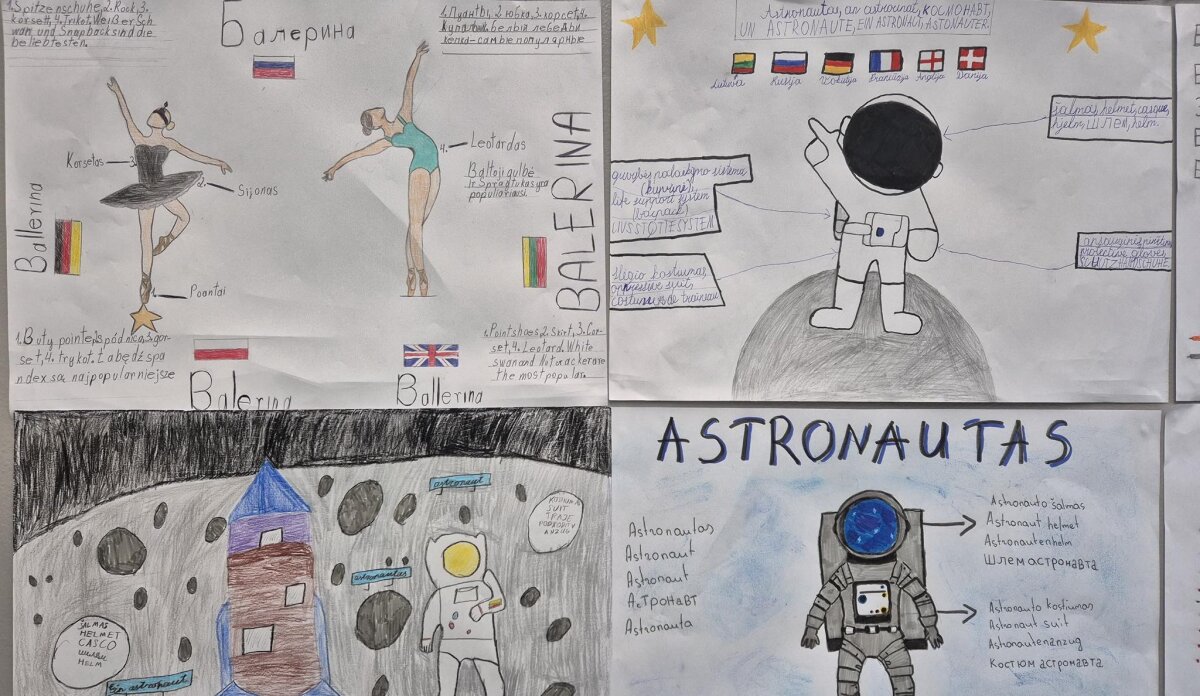 1. Spitzenschuhe, 2. Rock, 3.
korsett, 4. Trikot, Weißer Sch
wan und Snapback sind die
beliebtesten.
Балерина
1. Пуанты, 2. юбка, 3. корсет, 4.
белый лебедь и
самые популярные
Korsetas 3.
2. Sijonas
1. Poantai
4. Leotardas
Baltoji gulbė
ir Spragtukas yra
populiariausi.
Ballerina
BALERINA
1. Buty pointe, 2. spódnica, 3. gor-
set, 4. trykot. Łabędź spa
ndex są najpopularniejsze
Balerina
Ballerina
1. Pointshoes 2. Skirt, 3. Cor-
set, 4. Leotard. White
swan and Nutcracker are
the most popular.
Astronautas, an astronaut, КОСМОНАВТ,
UN ASTRONAUTE, EIN ASTRONAUT, ASTONAUTER
Lietuva
Rusija
Vokietija
Prancūzija
Anglija
Danija
šalmas, helmet, casque,
hjelm, ШЛЕМ, helm.
gyvybės palaikymo sistema
(kuprinė),
life support system
(bacpack)
LIVSSTØTTESYSTEM
slėgio kostiumas,
oppressive suit,
costumes de traîneau
protective gloves,
SCHUTZHANDSCHUHE
astronaut
astronautas
SUIT
TRAJE
ANZUG
ŠALMAS
HELMET
CASCO
HELM
Ein astronaut
ASTRONAUTAS
Astronautas
Astronaut
Astronaut
Астронавт
Astronauta
Astronauto šalmas
Astronaut helmet
Astronautenhelm
Шлем астронавта
Astronauto kostiumas
Astronaut suit
Astronautenanzug
Костюм астронавта